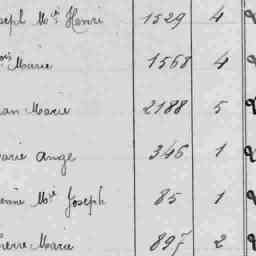 seph Mie Henri 1529 4
ois Marie 1568 4
an Marie 2188 5
arie Ange 346 1
ienne Mie Joseph 85 1
ierre Marie 897 2